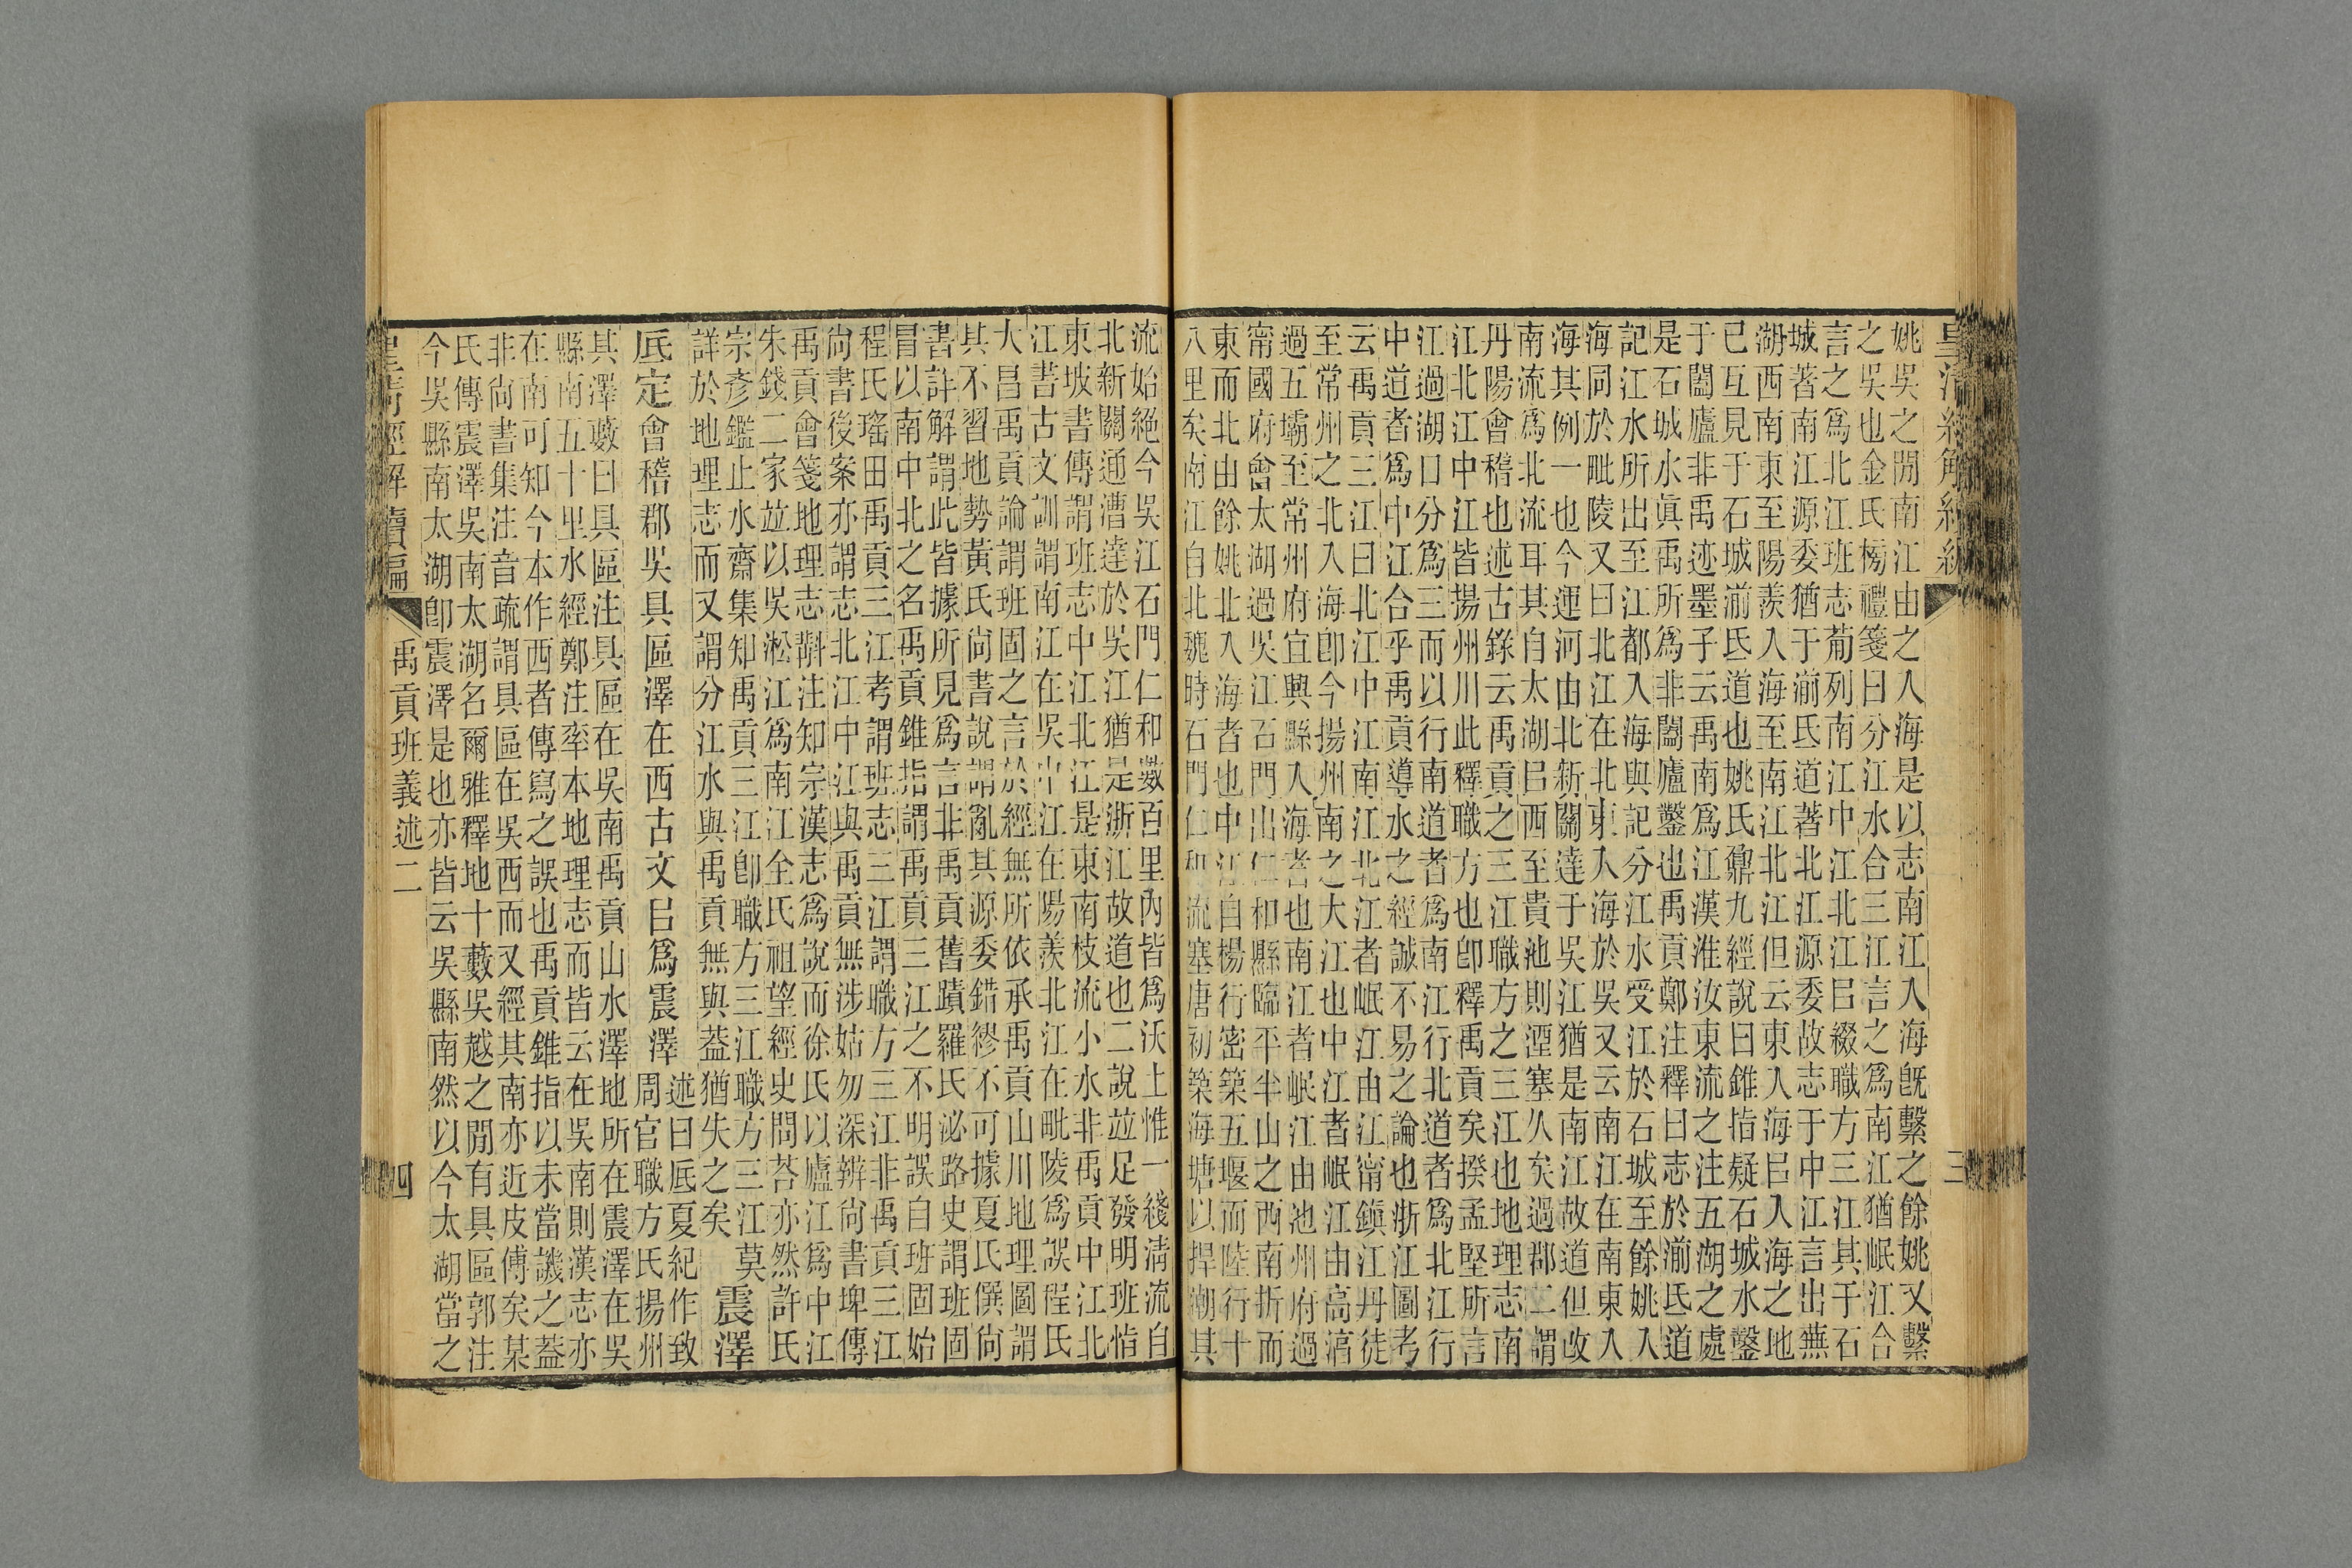 姚吳之閒南江由之入海是以志南江入海旣繫之餘姚又繫
之吳也金氏榜禮箋曰分江水合三江言之爲南江猶岷江合
言之爲北江班志葡列南江中江北江㠯綴職方三江其于石
城著南江源委猶于湔氐道著北江源委故志于中江言出蕪
湖西南東至陽羨入海至南江北江但云東入海㠯入海之地
已互見于石城湔氐道也姚氏鼐九經說曰錐指疑石城水鑿
于闔廬非禹迹墨子云禹南爲江漢淮汝東流之注五湖之處
是石城水眞禹所爲非闔廬鑿也禹貢鄭注釋曰志於湔氐道
記江水所出至江都入海與記分江水受江於石城至餘姚入
海同於毗陵又曰北江在北東入海於吳又云南江在南東入
海其例一也今運河由北新關達于吳江猶是南江故道但改
南流爲北流耳其自太湖㠯西至貴池則湮塞久矣過郡二謂
丹陽會稽也述古錄云禹貢之三江職方之三江也地理志南
江北江中江皆揚州川此釋職方也卽釋禹貢矣揆孟堅所言
江過湖口分爲三而以行南道者爲南江行北道者爲北江行
中道者爲中江合乎禹貢導水之經誠不易之論也浙江圖考
云禹貢三江曰北江中江南江北江者岷江由江甯鎮江丹徒
至常州之北入海卽今揚州南之大江也中江者岷江由高湻
過五壩至常州府宜興縣入海者也南江者岷江由池州府過
甯國府會太湖過吳江石門出仁和縣臨平半山之西南折而
東而北由餘姚北入海者也中江自楊行密築五堰而陸行十
八里矣南江自北魏時石門仁和流塞唐初築海塘以捍潮其
皇清經解續編
三
流始絕今吳江石門仁和數百里內皆爲沃土惟一綫淸流自
北新關通漕達於吳江猶是浙江故道也二說竝足發明班恉
東坡書傳謂班志中江北江是東南枝流小水非禹貢中江北
江書古文訓謂南江在吳中江在陽羨北江在毗陵爲誤程氏
大昌禹貢論謂班固之言於經無所依承禹貢山川地理圖謂
其不習地勢黃氏尙書說謂亂其源委錯繆不可據夏氏僎尙
書詳解謂此皆據所見爲言非禹貢舊蹟羅氏泌路史謂班固
冒以南中北之名禹貢錐指謂禹貢三江之不明誤自班固始
程氏瑤田禹貢三江考謂班志三江謂職方三江非禹貢三江
尙書後案亦謂志北江中江與禹貢無涉姑勿深辨尙書埤傳
禹貢會箋地理志斠注知宗漢志爲說而徐氏以廬江爲中江
朱錢二家竝以吳淞江爲南江全氏祖望經史問荅亦然許氏
宗彥鑑止水齋集知禹貢三江卽職方三江職方三江莫
詳於地理志而又謂分江水與禹貢無與葢猶失之矣　震澤
厎定會稽郡吳具區澤在西古文㠯爲震澤述曰厎夏紀作致
周官職方氏揚州
其澤藪曰具區注具區在吳南禹貢山水澤地所在震澤在吳
縣南五十里水經鄭注率本地理志而皆云在吳南則漢志亦
在南可知今本作西者傳寫之誤也禹貢錐指以未當譏之葢
非尙書集注音疏謂具區在吳西而又經其南亦近皮傅矣某
氏傳震澤吳南太湖名爾雅釋地十藪吳越之閒有具區郭注
今吳縣南太湖卽震澤是也亦皆云吳縣南然以今太湖當之
皇淸經解續編
禹貢班義述二
四